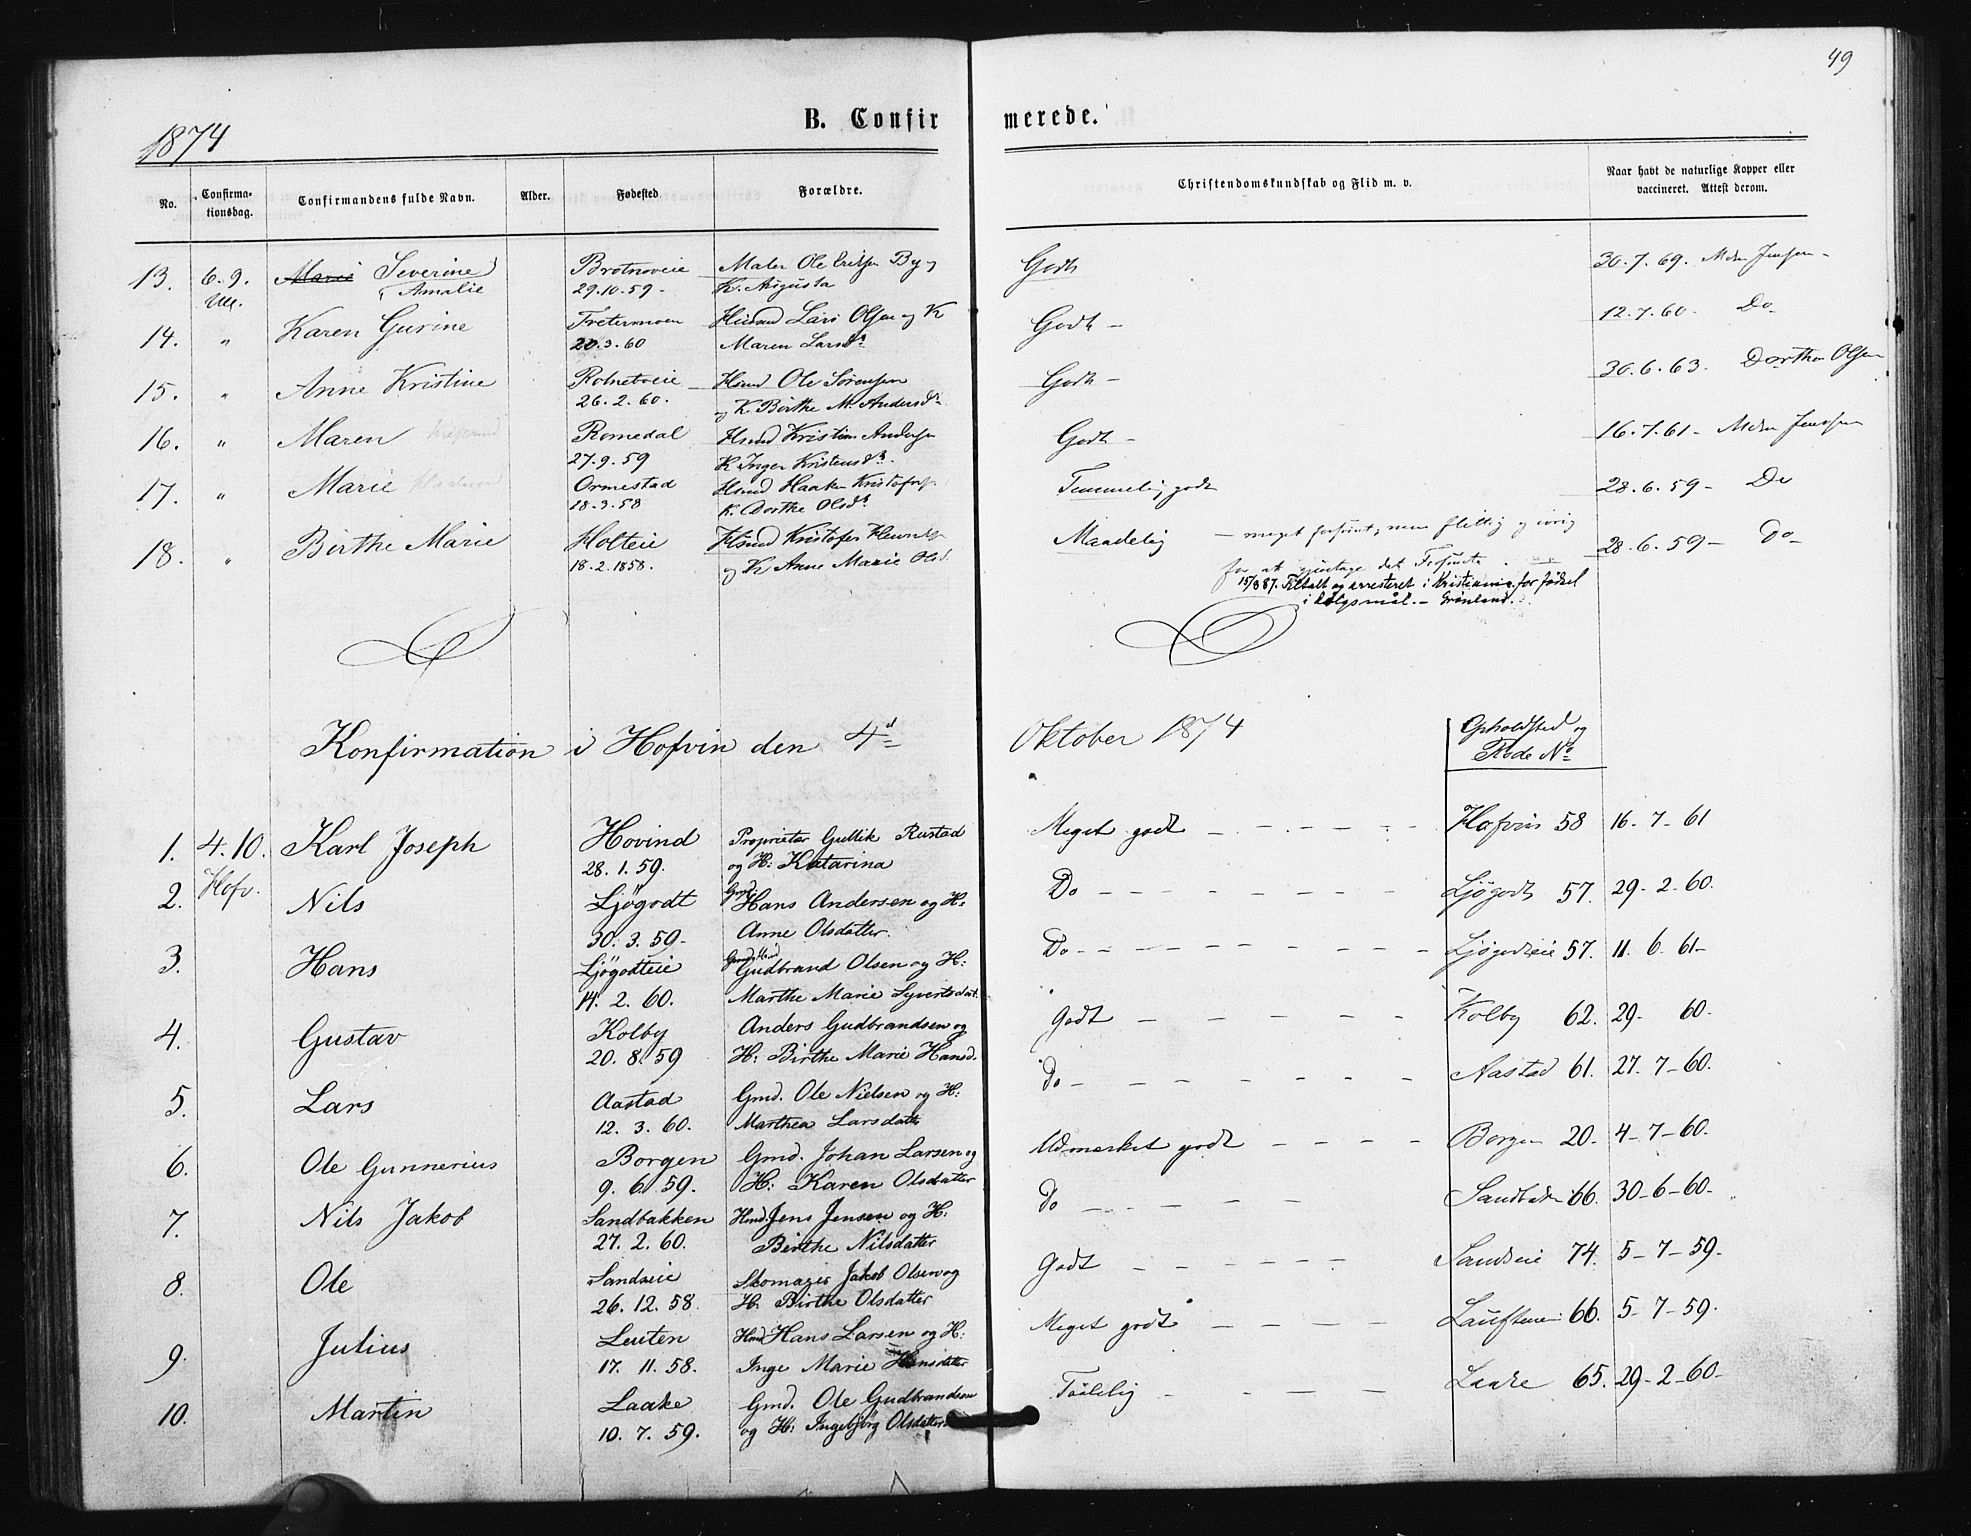 49
1874
B. Confir merede.
No. Confirma-tionsdag. Confirmandens fulde Navn. Alder. Fødested Forældre. Christendomskundskab og Flid m. v. Naar havt de naturlige Kopper eller vaccineret. Attest derom.
13. 6.9. Severine Maler Ole By og Godt 30.7.69.
Ull. Amalie 29.10.59 K. Augusta
14. " Karen Gurine Lars Olsen og K Godt 12.7.60. Do
20.3.60 Maren Larsd.
15. " Anne Kristine Ole Sørensen Godt 30.6.63. Dorthea Olsen
26.2.60. og K. Birthe M. Andersd.
16. " Maren Romedal Hsmd Kristian Andersen Godt 16.7.61
27.9.59 K. Inger Kristensd.
17. " Marie Ormestad Hsmd Haaken Kristofers Temmelig godt 28.6.59 Do
18.3.58 K. Dorthe Olsd.
18. " Birthe Marie Holteie Hsmd Kristofer Maadelig - meget forsømt, men flittig og ivrig 28.6.59 Do
18.2.1858. og K Anne Marie Olsd. for at det Forsømte
15/8 87. Tiltalt og arresteret i Kristiania for fødsel
i dølgsmål. - Grønland.
Konfirmation i Hofvin den 4d Oktober 1874 Opholdsted og
Rode No
1. 4.10. Karl Joseph Hovind Proprietær Gullik Rustad Meget godt Hofvin 58 16-7-61
Hofv. 28.1.59. og H: Katarina
2. Nils Ljøgodt Gmd. Hans Andersen og H: Do Ljøgodt 57. 29-2-60.
30.3.59. Anne Olsdatter.
3. Hans Ljøgodteie Gudbrand Olsen og H: Do Ljøgodteie 57. 11. 6. 61-
14. 2. 60. Marthe Marie Syvertsdat.
4. Gustav Kolby Anders Gudbrandsen og Godt Kolby 62. 29- 60.
20. 8. 59 H: Birthe Marie Hansd.
5. Lars Aastad Gmd. Ole Nielsen og H: Do Aastad 61. 27-7-60.
12. 3. 60. Marthea Larsdatter
6. Ole Gunnerius Borgen Gmd. Johan Larsen og Udmerket godt Borgen 20- 4-7-60.
9. 6. 59. H: Karen Olsdatter
7. Nils Jakob Sandbakken Hmd. Jens Jensen og H: Do Sandbakken 66. 30-6-60-
27. 2. 60. Birthe Nilsdatter
8. Ole Sandseie Skomager Jakob Olsen og Godt Sandseie 74. 5-7-59-
26. 12. 58. H: Birthe Olsdatter
9. Julius Leuten Hmd Hans Larsen og H: Meget godt 66. 5-7-59.
17. 11. 58. Inge Marie Hansdatter
10. Martin Laake Gmd. Ole Gudbrandsen Taalelig Laake 65. 29-2-60-
10. 7. 59. og H: Ingebjørg Olsdatter